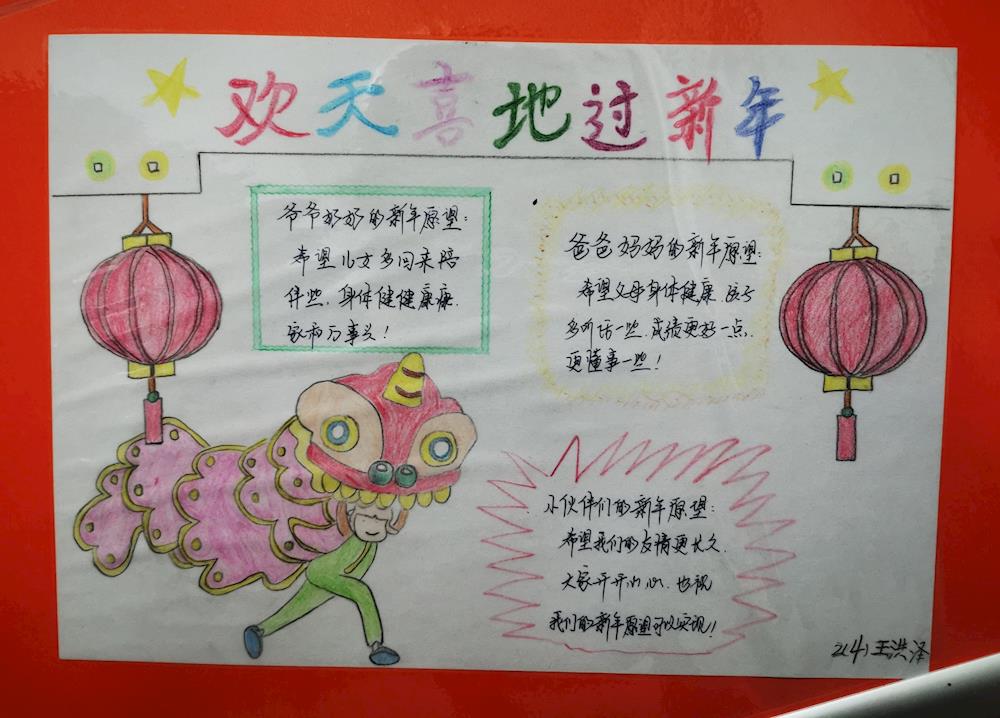 欢天喜地过新年
爷爷奶奶的新年愿望:
希望儿女多回来陪
伴些,身体健健康康.
家和万事兴!
爸爸妈妈的新年愿望:
希望父母身体健康.孩子
多听话一些.成绩更好一点.
更懂事一些!
小伙伴们的新年愿望:
希望我们的友情更长久.
大家开开心心.也祝
我们的新年愿望可以实现!
2(4)王洪泽